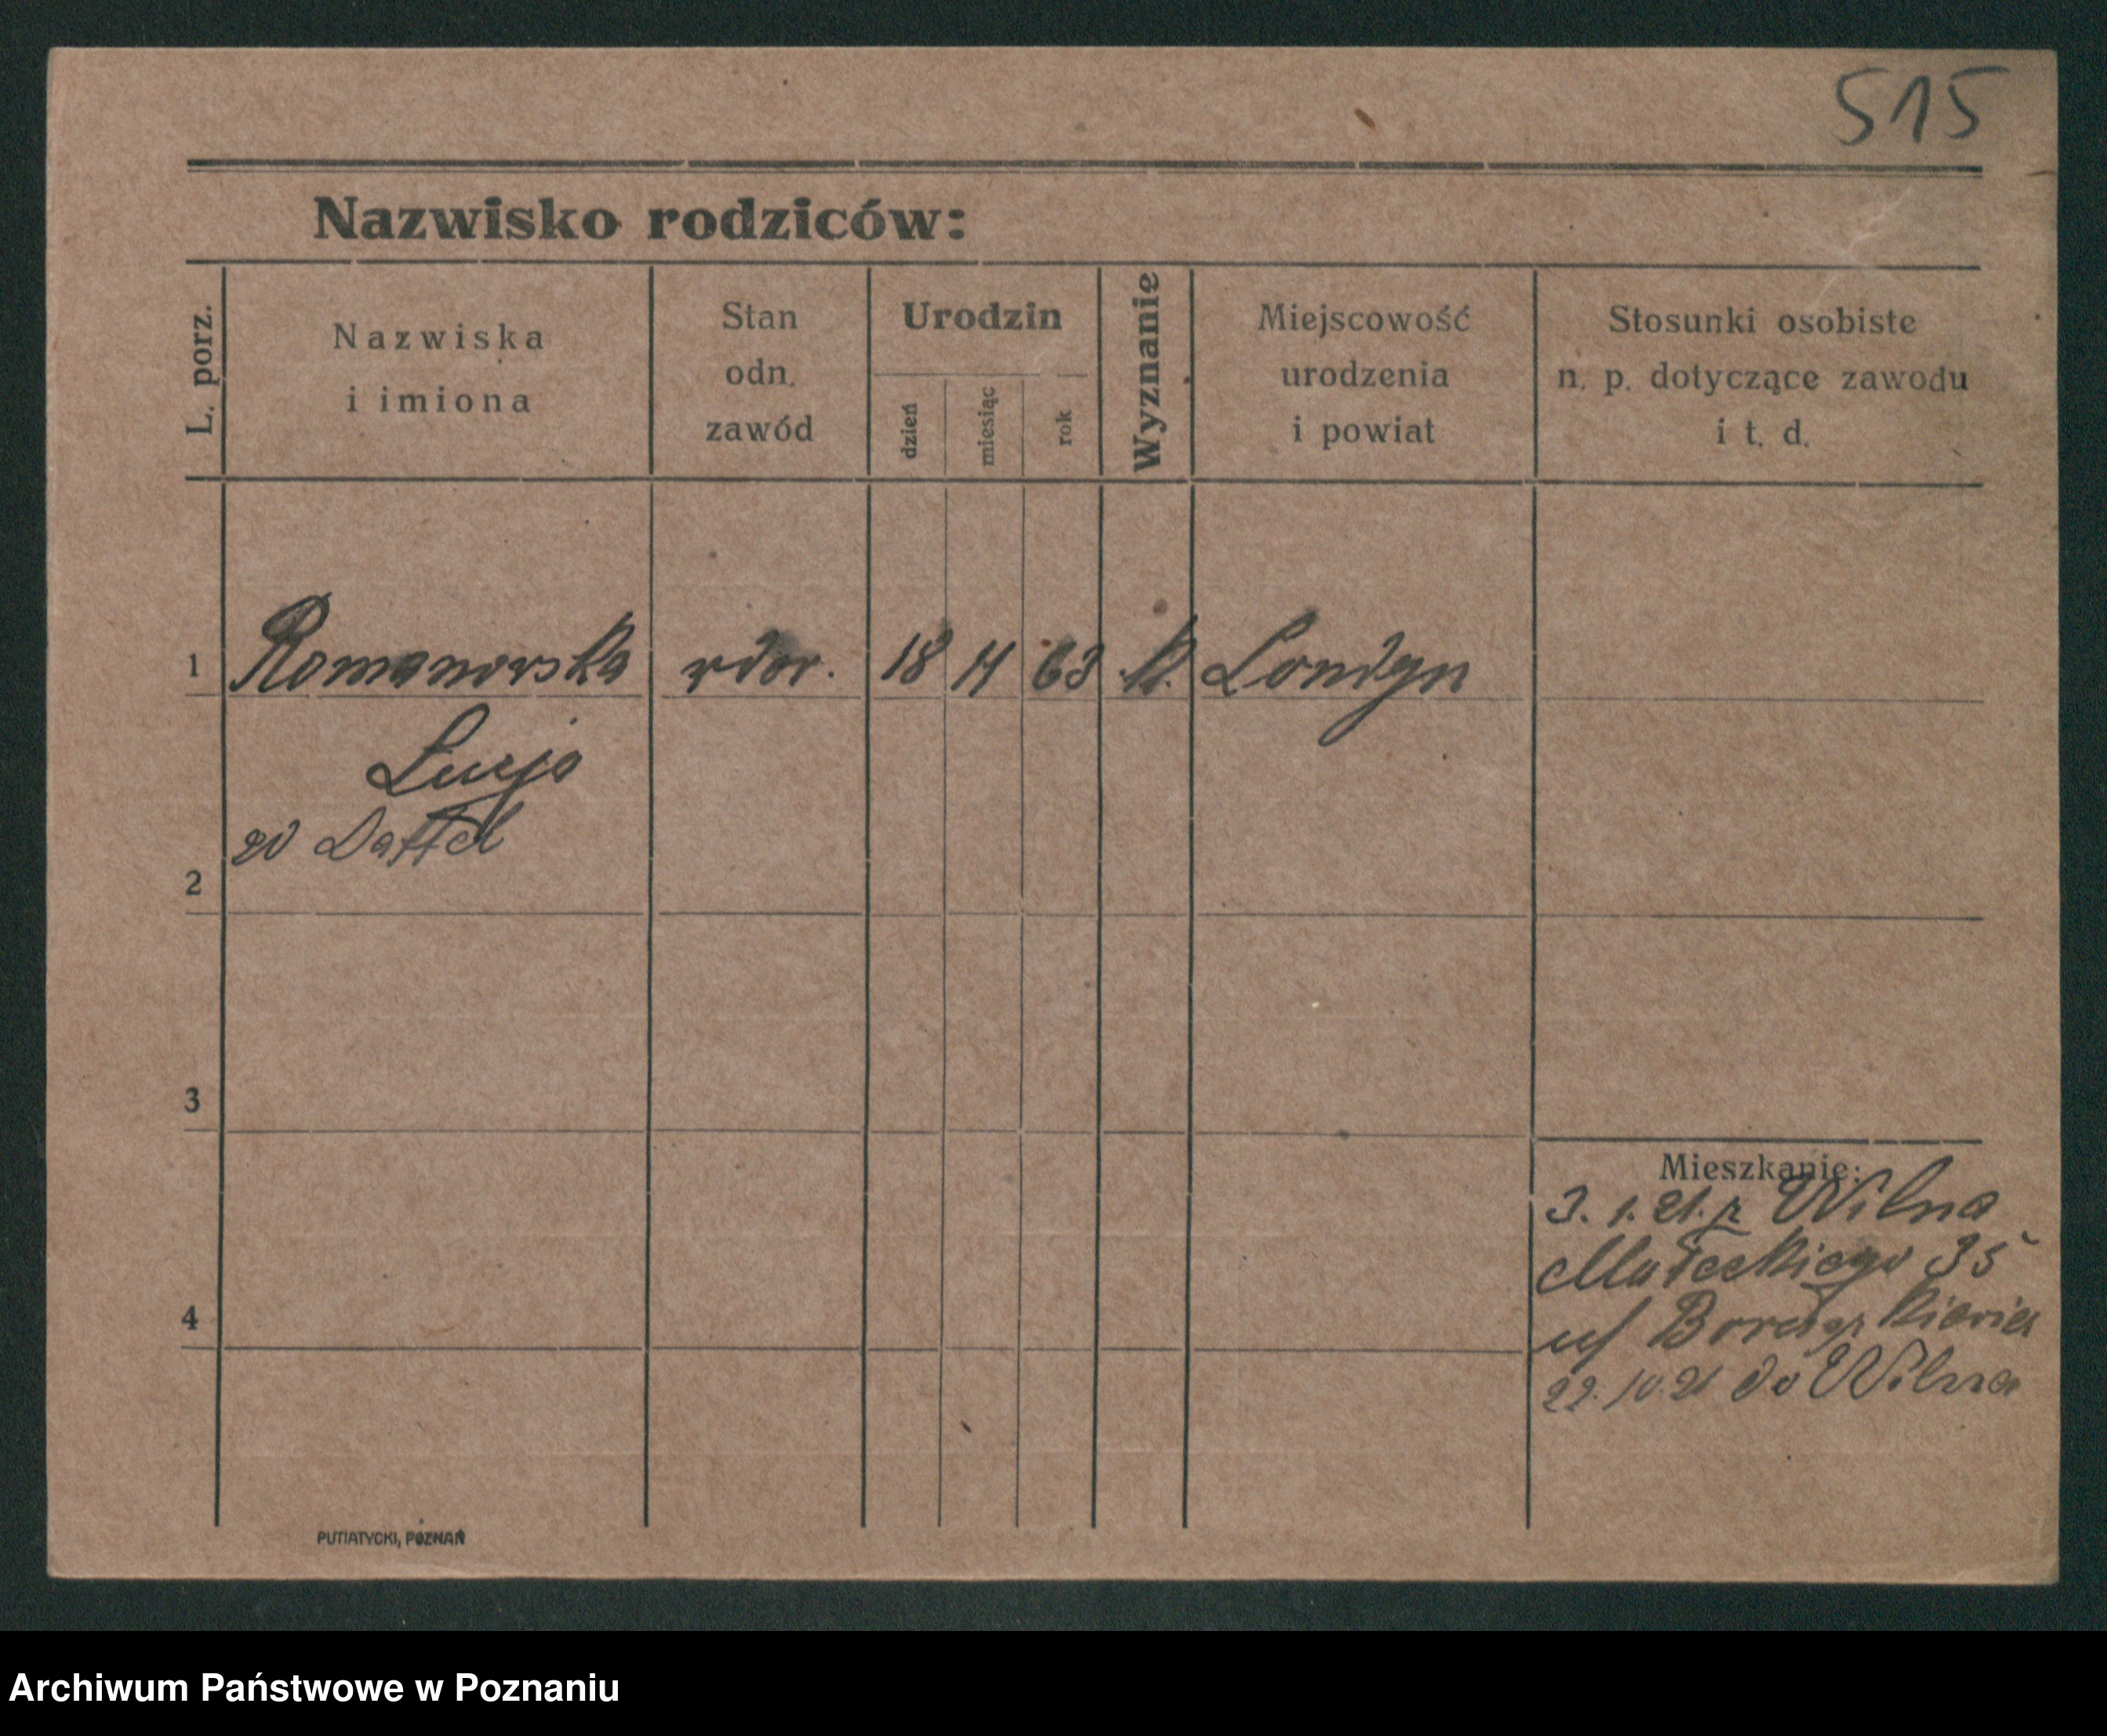 515
Nazwisko rodziców:
L. porz.
Nazwiska
i imiona
Stan
odn.
zawód
Urodzin
dzień
miesiąc
rok
Wyznanie
Miejscowość
urodzenia
i powiat
Stosunki osobiste
n. p. dotyczące zawodu
i t. d.
1 Romanowska wdow. 18 63 k. Londyn
Lucja
Dattel
2
3
4
Mieszkanie:
3. 1. 21. z Wilna
Małeckiego 35
22. 10. 21 do Wilna
PUTIATYCKI, POZNAŃ
Archiwum Państwowe w Poznaniu